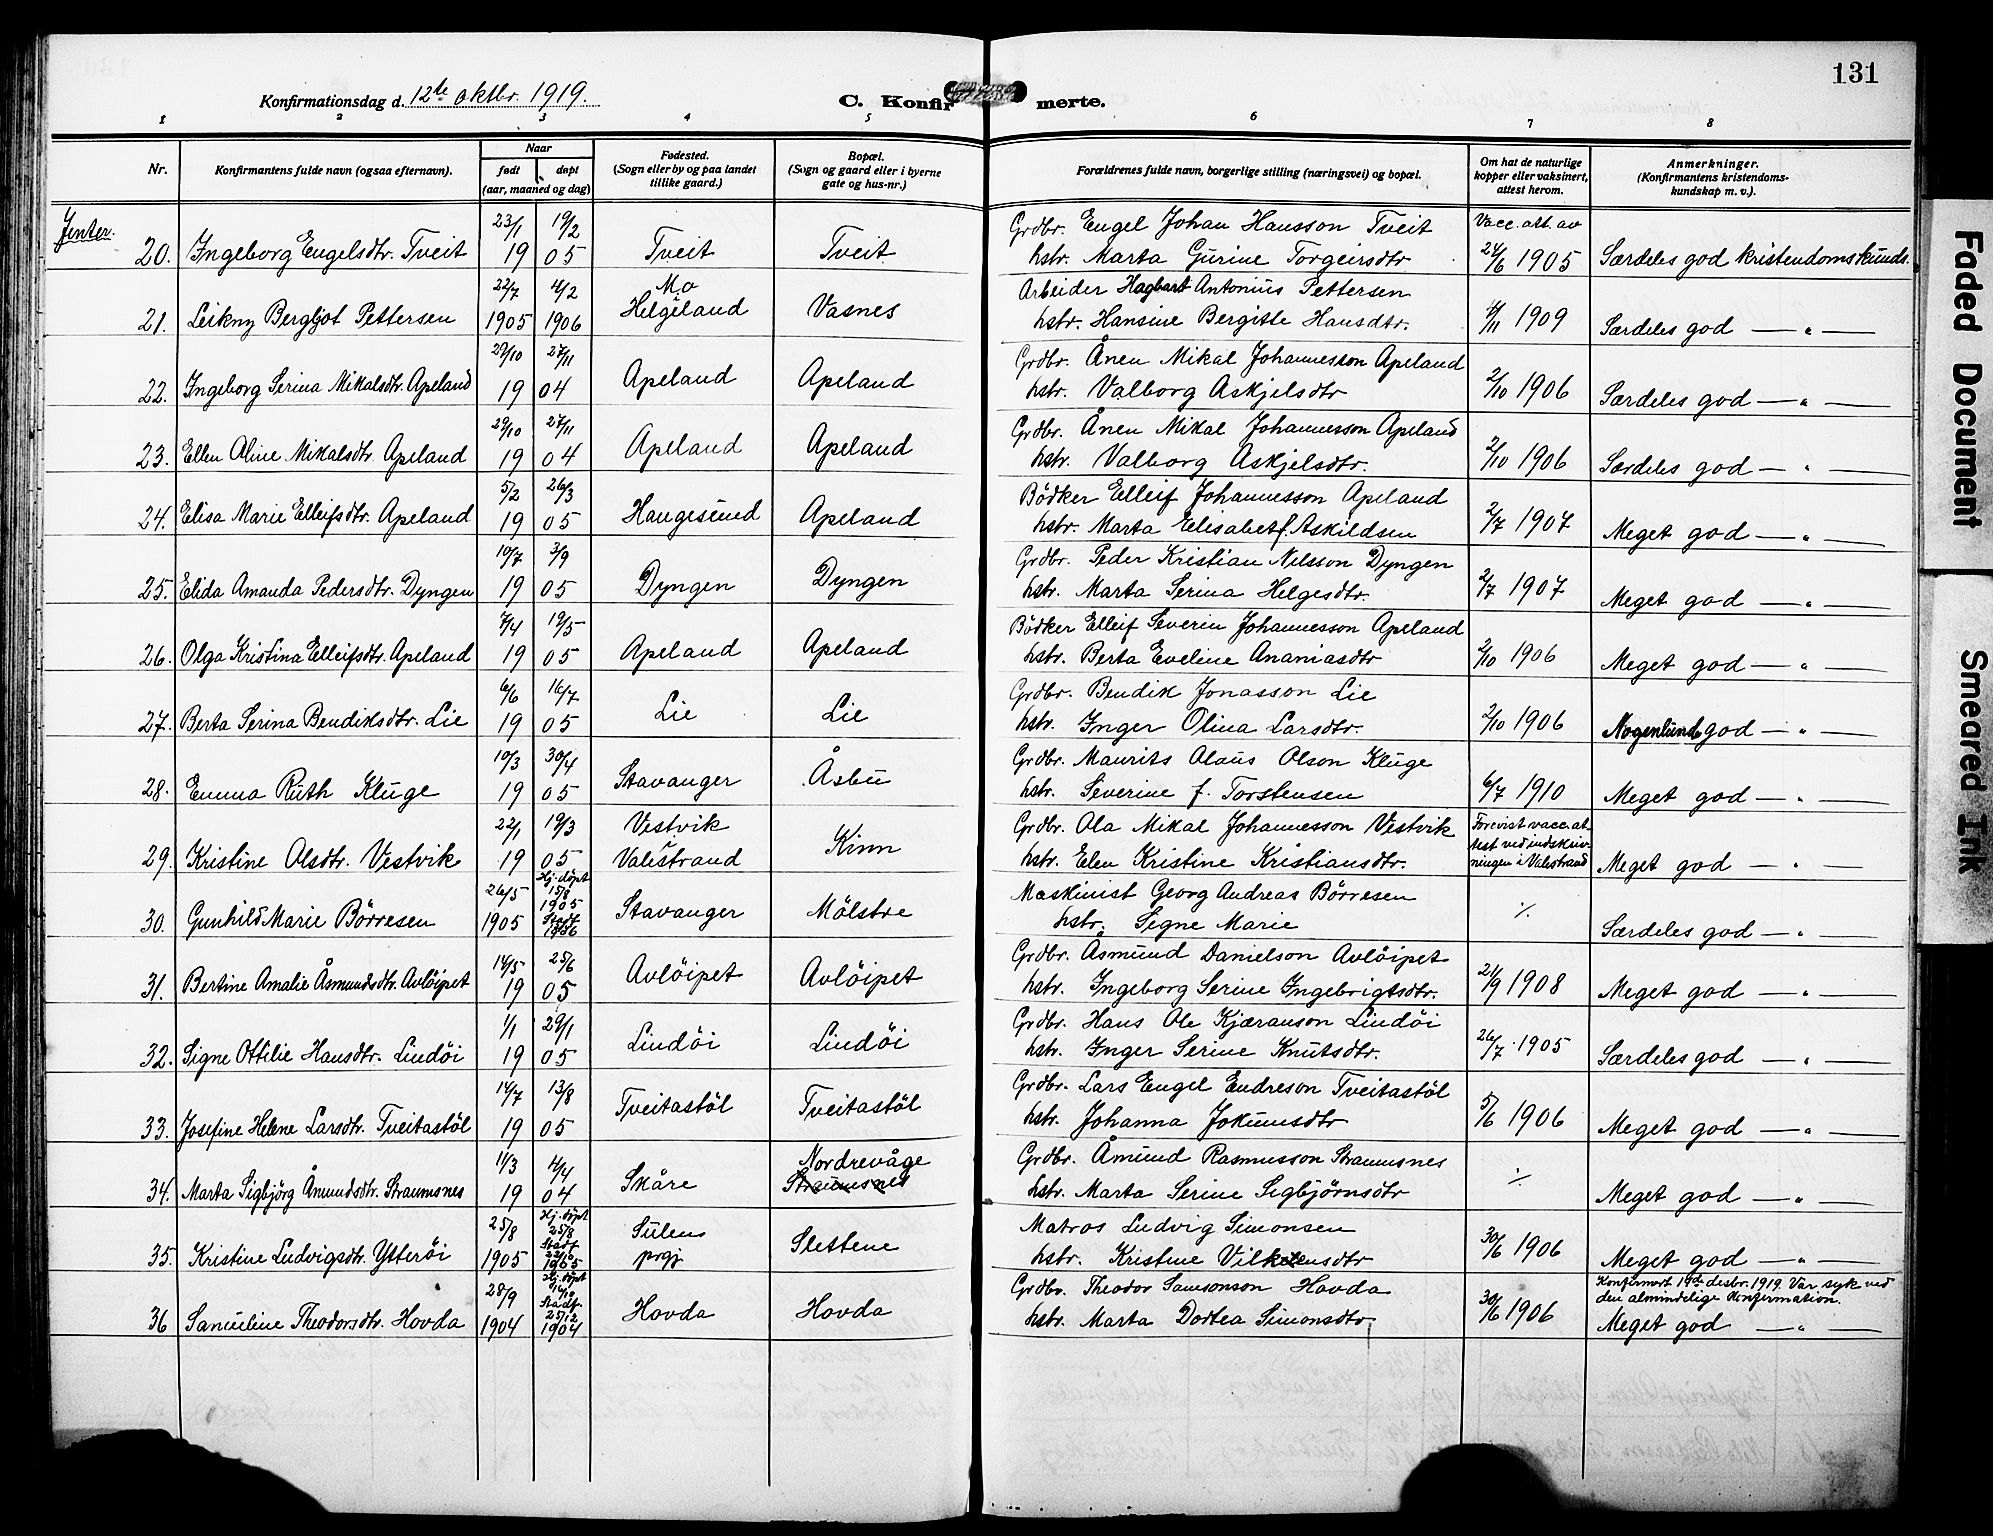 131
Konfirmationsdag d. 12te oktbr. 1919.
C. Konfirmerte.
1 2 3 4 5 6 7 8
Nr. Konfirmantens fulde navn (ogsaa efternavn). Naar født døpt (aar, maaned og dag) Fødested. (Sogn eller by og paa landet tillike gaard.) Bopæl. (Sogn og gaard eller i byerne gate og hus-nr.) Forældrenes fulde navn, borgerlige stilling (næringsvei) og bopæl. Om hat de naturlige kopper eller vaksinert, attest herom. Anmerkninger. (Konfirmantens kristendomskundskap m. v.).
Jenter.
23/1 19/2 Grdbr. Engel Johan Hansson Tveit Vacc. att. av
20. Ingeborg Engelsdtr. Tveit 19 05 Tveit Tveit hstr. Marta Gurine Torgeirsdtr 24/6 1905 Særdeles god kristendomskunds.
22/7 4/2 Mo Arbeider Hagbart Antonius Pettersen
21. Leikny Bergljot Pettersen 1905 1906 Helgeland Vasnes hstr. Hansine Bergitte Hansdtr. 4/11 1909 Særdeles god — " —
29/10 27/11 Grdbr. Ånen Mikal Johannesson Apeland
22. Ingeborg Serina Mikalsdtr. Apeland 19 04 Apeland Apeland hstr. Valborg Askjelsdtr 2/10 1906 Særdeles god — " —
29/10 27/11 Grdbr. Ånen Mikal Johannesson Apeland
23. Ellen Oline Mikalsdtr. Apeland 19 04 Apeland Apeland hstr. Valborg Askjelsdtr. 2/10 1906 Særdeles god — " —
5/2 26/3 Bödker Elleif Johannesson Apeland
24. Elisa Marie Elleifsdtr. Apeland 19 05 Haugesund Apeland hstr. Marta Elisabet f. Askildsen 2/7 1907 Meget god — " —
10/7 3/9 Grdbr. Peder Kristian Nilsson Dyngen
25. Elida Amanda Pedersdtr. Dyngen 19 05 Dyngen Dyngen hstr. Marta Serina Helgesdtr. 2/7 1907 Meget god — " —
7/4 19/5 Bödker Elleif Severin Johannesson Apeland
26. Olga Kristina Elleifsdtr. Apeland 19 05 Apeland Apeland hstr. Berta Eveline Ananiasdtr 2/10 1906 Meget god — " —
6/6 16/7 Grdbr. Bendik Jonasson Lie
27. Berta Serina Bendiksdtr. Lie 19 05 Lie Lie hstr. Inger Olina Larsdtr. 2/10 1906 Nogenlund god — " —
10/3 30/4 Grdbr. Maurits Olaus Olson Kluge
28. Emma Ruth Kluge 19 05 Stavanger Åsbu hstr. Severine f. Torstensen 6/7 1910 Meget god — " —
22/1 19/3 Vestvik Grdbr. Ola Mikal Johannesson Vestvik Forevist vacc. at-
29. Kristine Olsdtr. Vestvik 19 05 Valestrand Kinn hstr. Elen Kristine Kristiansdtr. test ved indskriv-
ningen i Valestrand Meget god — " —
26/5 Hj. döpt 15/8 1905 Maskinist Georg Andreas Börresen
30. Gunhild Marie Börresen 1905 Stadf. 1906 Stavanger Mölstre hstr. Signe Marie ./. Særdeles god — " —
14/5 25/6 Grdbr. Åsmund Danielson Avlöipet
31. Bertine Amalie Åsmundsdtr. Avlöipet 19 05 Avlöipet Avlöipet hstr. Ingeborg Serine Ingebrigtsdtr. 21/9 1908 Meget god — " —
1/1 29/1 Grdbr. Hans Ole Kjæranson Lindöi
32. Signe Ottilie Hansdtr. Lindöi 19 05 Lindöi Lindöi hstr. Inger Serine Knutsdtr. 26/7 1905 Særdeles god — " —
14/7 13/8 Grdbr. Lars Engel Endreson Tveitastöl
33. Josefine Helene Larsdtr. Tveitastöl 19 05 Tveitastöl Tveitastöl hstr. Johanna Jokumsdtr 5/6 1906 Meget god — " —
11/3 4/4 Nordrevåge Grdbr. Åmund Rasmusson Straumsnes
34. Marta Sigbjörg Åmundsdtr. Straumsnes 19 04 Skåre Straumsnes hstr. Marta Serine Sigbjörnsdtr ./. Meget god — " —
25/8 Hj. döpt 25/8 Sulen Matros Ludvig Simonsen
35. Kristine Ludvigsdtr. Ytteröi 1905 Stadf. 22/10 1905 prgj Slettene hstr. Kristine Vilkensdtr 30/6 1906 Meget god — " —
28/9 Hj. döpt Grdbr. Theodor Samsonson Hovda Konfirmert 14de desbr. 1919. Var syk ved
den almindelige konfirmation.
36 Samuline Theodorsdtr. Hovda 1904 Stadf. 25/12 1904 Hovda Hovda hstr. Marta Dortea Simonsdtr. 30/6 1906 Meget god — " —
Faded Document
Smeared Ink